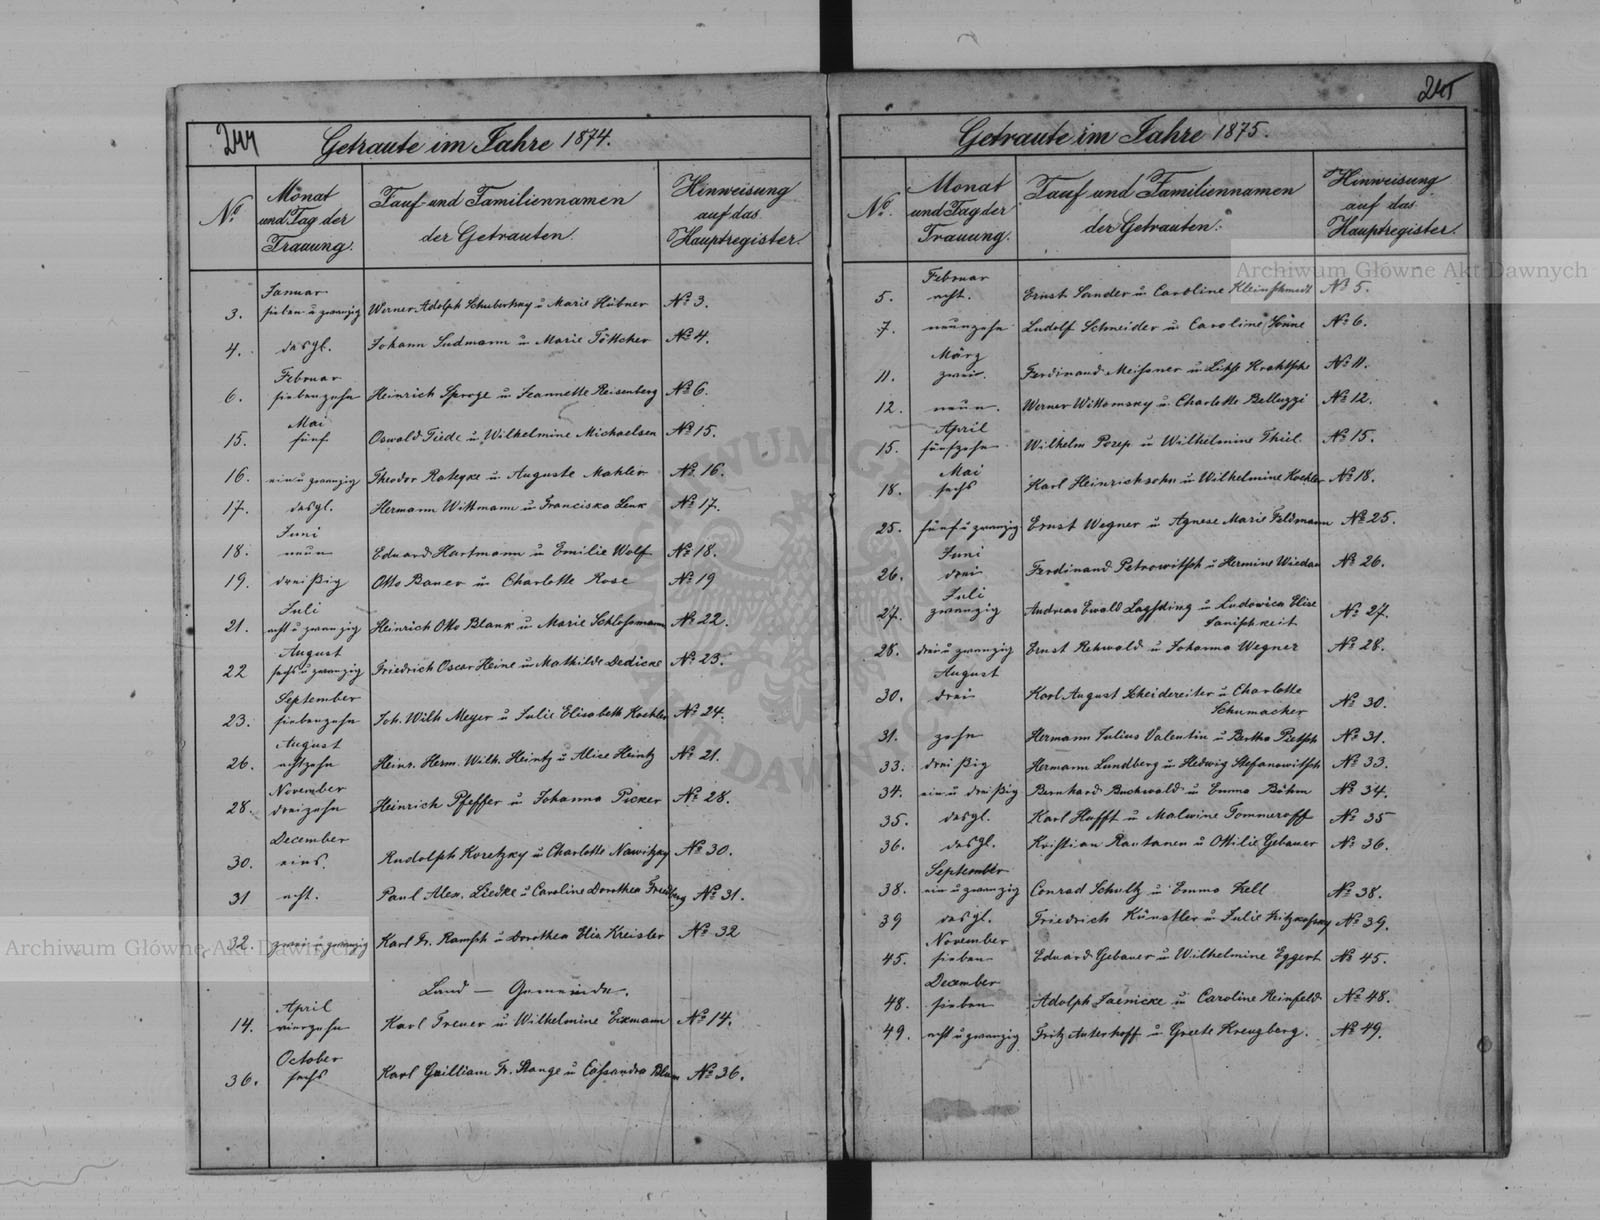 244
Getraute im Jahre 1874.
No
Monat und Tag der Trauung.
Tauf- und Familiennamen der Getrauten.
Hinweisung auf das Hauptregister.
Januar
3. sieben u zwanzig Werner Adolph Schubertzky u Marie Hübner No 3.
4. desgl. Johann Sudmann u Marie Töttcher No 4.
Februar
6. siebenzehn Heinrich Sproge u Jeannette Reisenberg No 6.
Mai
15. fünf Oswald Tiede u Wilhelmine Michaelsen No 15.
16. ein u zwanzig Theodor Ratzke u Auguste Mahler No 16.
17. desgl. Hermann Wittmann u Franciska Lenk No 17.
Juni
18. neun Eduard Hartmann u Emilie Wolf No 18.
19. dreißig Otto Bauer u Charlotte Rose No 19
Juli
21. acht u zwanzig Heinrich Otto Blank u Marie Schlossmann No 22.
August
22 sechs u zwanzig Friedrich Oscar Heine u Mathilde Dedicke No 23.
September
23. siebenzehn Joh. Wilh Meyer u Julie Elisabeth Koehler No 24.
August
26. achtzehn Heinr. Herm. Wilh. Heintz u Alice Heintz No 21.
November
28. dreizehn Heinrich Pfeffer u Johanna Picker No 28.
December
30. eins. Rudolph Koretzky u Charlotte Nawitzky No 30.
31 acht. Paul Alex. Liedke u Caroline Dorothea Friedberg No 31.
32. zwei u zwanzig Karl Fr. Rampf u Dorothea Elis Kreisler No 32
Land – Gemeinde.
April
14. vierzehn Karl Treuer u Wilhelmine Eixmann No 14.
October
36. sechs Karl Guilliam Fr. Stange u Cassandra Blum No 36.
245
Getraute im Jahre 1875.
No.
Monat und Tag der Trauung.
Tauf und Familiennamen der Getrauten.
Hinweisung auf das Hauptregister.
Februar
5. acht. Ernst Sander u Caroline Kleinschmidt No 5.
7. neunzehn Ludolf Schneider u Caroline Sönne No 6.
März
11. zwei. Ferdinand Meissner u No 11.
12. neun. Werner Wittomsky u Charlotte Belluzzi No 12.
April
15. fünfzehn Wilhelm Pozep u Wilhelmine Thiel No 15.
Mai
18. sechs Karl Heinrichsohn u Wilhelmine Koehler No 18.
25. fünf u zwanzig Ernst Wegner u Agnese Marie Feldmann No 25.
Juni
26. drei Ferdinand Petrowitsch u Hermine Wiedau No 26.
Juli
27. zwanzig Andreas Ewald Lagsding u Ludowica Elise
Janischkeit No 27.
28. drei u zwanzig Ernst Rehwald u Johanna Wegner No 28.
August
30. drei Karl August Scheidereiter u Charlotte
Schumacher No 30.
31. zehn Hermann Julius Valentin u Bertha Pietsch No 31.
33. dreißig Hermann Lundberg u Hedwig Stefanowitsch No 33.
34. ein u dreißig Bernhard Buchwald u Emma Böhm No 34.
35. desgl. Karl Hufft u Malwine Tommeroff No 35
36. desgl. Kristian Rautanen u Ottilie Gebauer No 36.
September
38. ein u zwanzig Conrad Schultz u Emma Zell No 38.
39 desgl. Friedrich Künstler u Julie Kitzkofsky No 39.
November
45. sieben Eduard Gebauer u Wilhelmine Eggert No 45.
December
48. sieben Adolph Jaenicke u Caroline Reinfeld No 48.
49. acht u zwanzig Fritz Auterhoff u Greete Kreuzberg. No 49.
Archiwum Główne Akt Dawnych
Archiwum Główne Akt Dawnych
ARCHIWUM GŁÓWNE AKT DAWNYCH